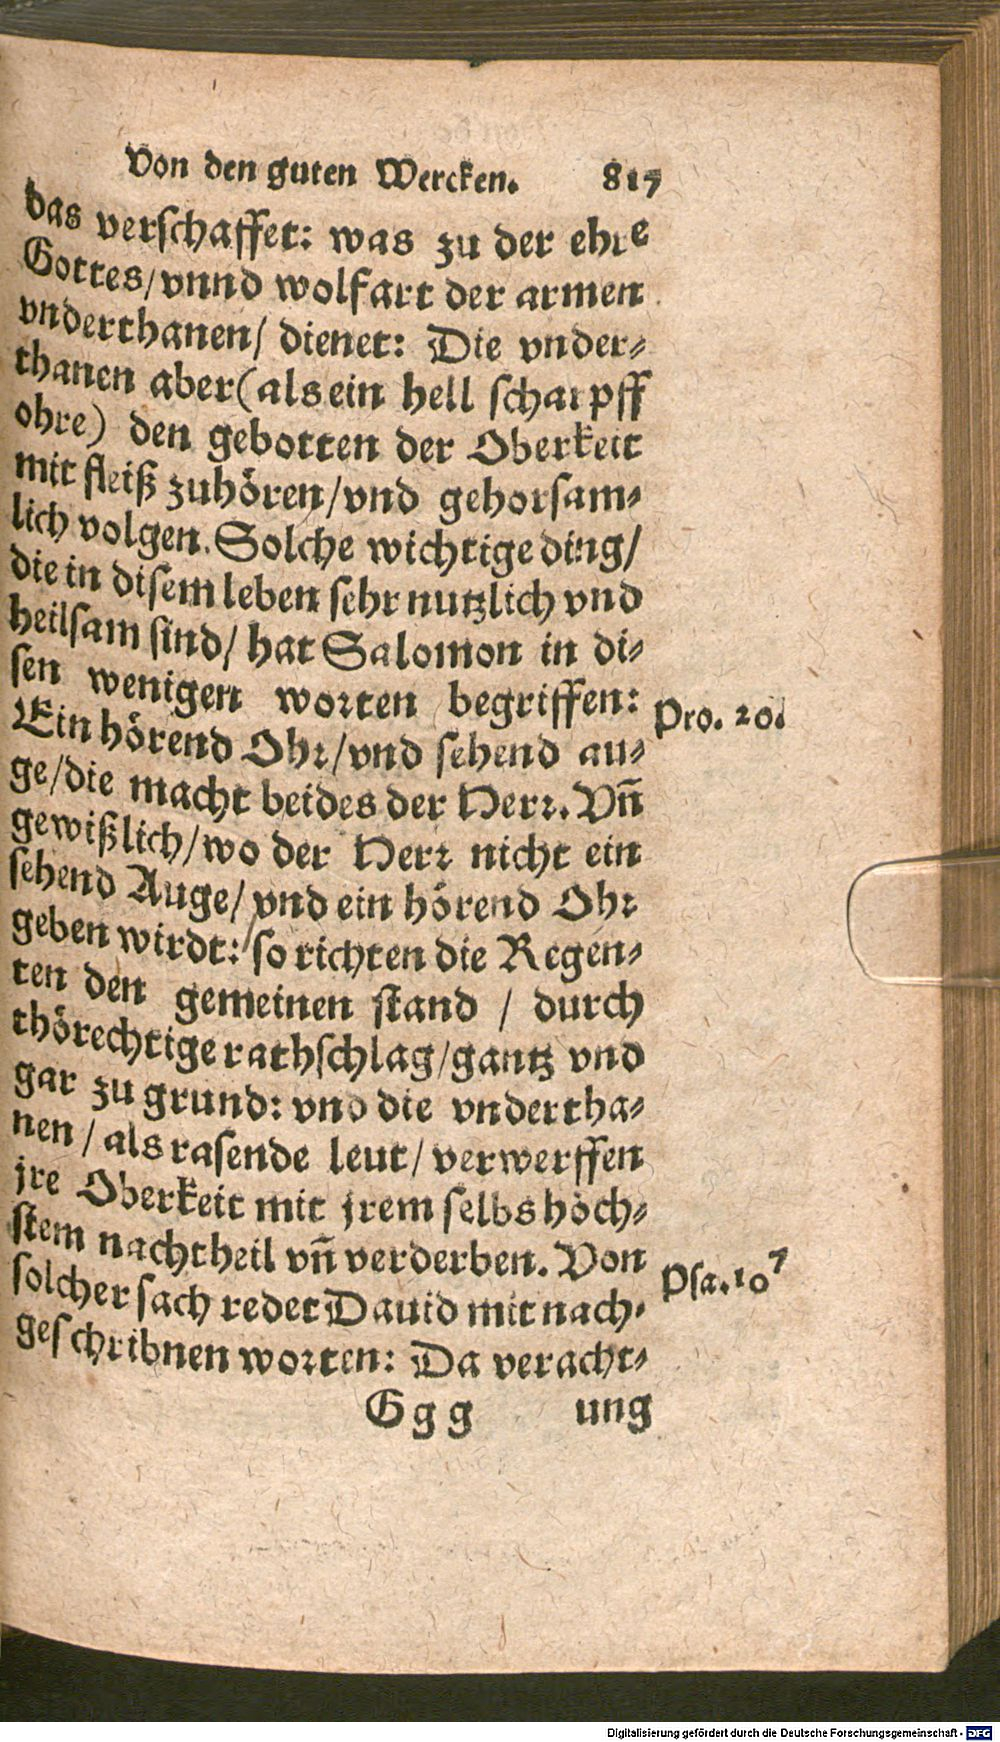 Von den guten Wercken. 817
das verschaffet: was zu der ehre
Gottes/vnnd wolfart der armen
vnderthanen/ dienet: Die vnder-
thanen aber (als ein hell scharpff
ohre) den gebotten der Oberkeit
mit fleiß zuhören/vnd gehorsam-
lich volgen. Solche wichtige ding/
die in disem leben sehr nutzlich vnd
heilsam sind/ hat Salomon in di-
sen wenigen worten begriffen:
Ein hörend Ohr/vnd sehend au- Pro. 20.
ge/die macht beides der Herr. Vñ
gewißlich/wo der Herr nicht ein
sehend Auge/ vnd ein hörend Ohr
geben wirdt: so richten die Regen-
ten den gemeinen stand / durch
thörechtige rathschlag/gantz vnd
gar zu grund: vnd die vndertha-
nen / als rasende leut/ verwerffen
jre Oberkeit mit jrem selbs höch-
stem nachtheil vñ verderben. Von
solcher sach redet Dauid mit nach- Psa. 107
geschribnen worten: Da veracht-
Ggg ung
Digitalisierung gefördert durch die Deutsche Forschungsgemeinschaft - DFG